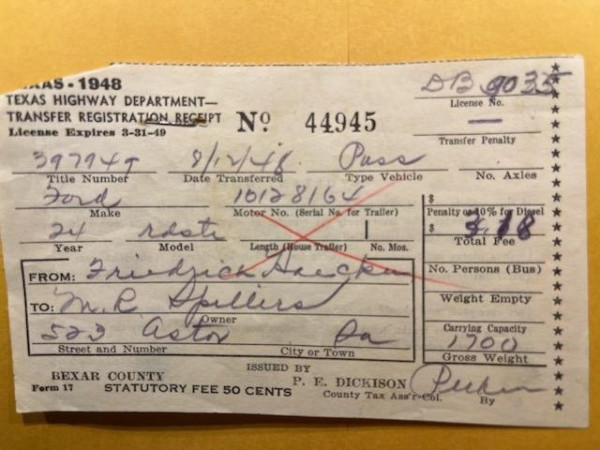 XAS - 1948
TEXAS HIGHWAY DEPARTMENT—
TRANSFER REGISTRATION RECEIPT
License Expires 3-31-49
Nº 44945
DB 9035
License No.
—
Transfer Penalty
8/12/48 Pass
Title Number Date Transferred Type Vehicle No. Axles
Ford 10128164
Make Motor No. (Serial No. for Trailer)
24 rdstr
Year Model Length (House Trailer) No. Mos.
$
Penalty or 10% for Diesel
$ 3.18
Total Fee
No. Persons (Bus)
Weight Empty
Carrying Capacity
1700
Gross Weight
FROM: Friedrick
TO: M. R. Spillers
Owner
523 Astor
Street and Number City or Town
BEXAR COUNTY
Form 17 STATUTORY FEE 50 CENTS
ISSUED BY
P. E. DICKISON
County Tax Ass'r-Col. By